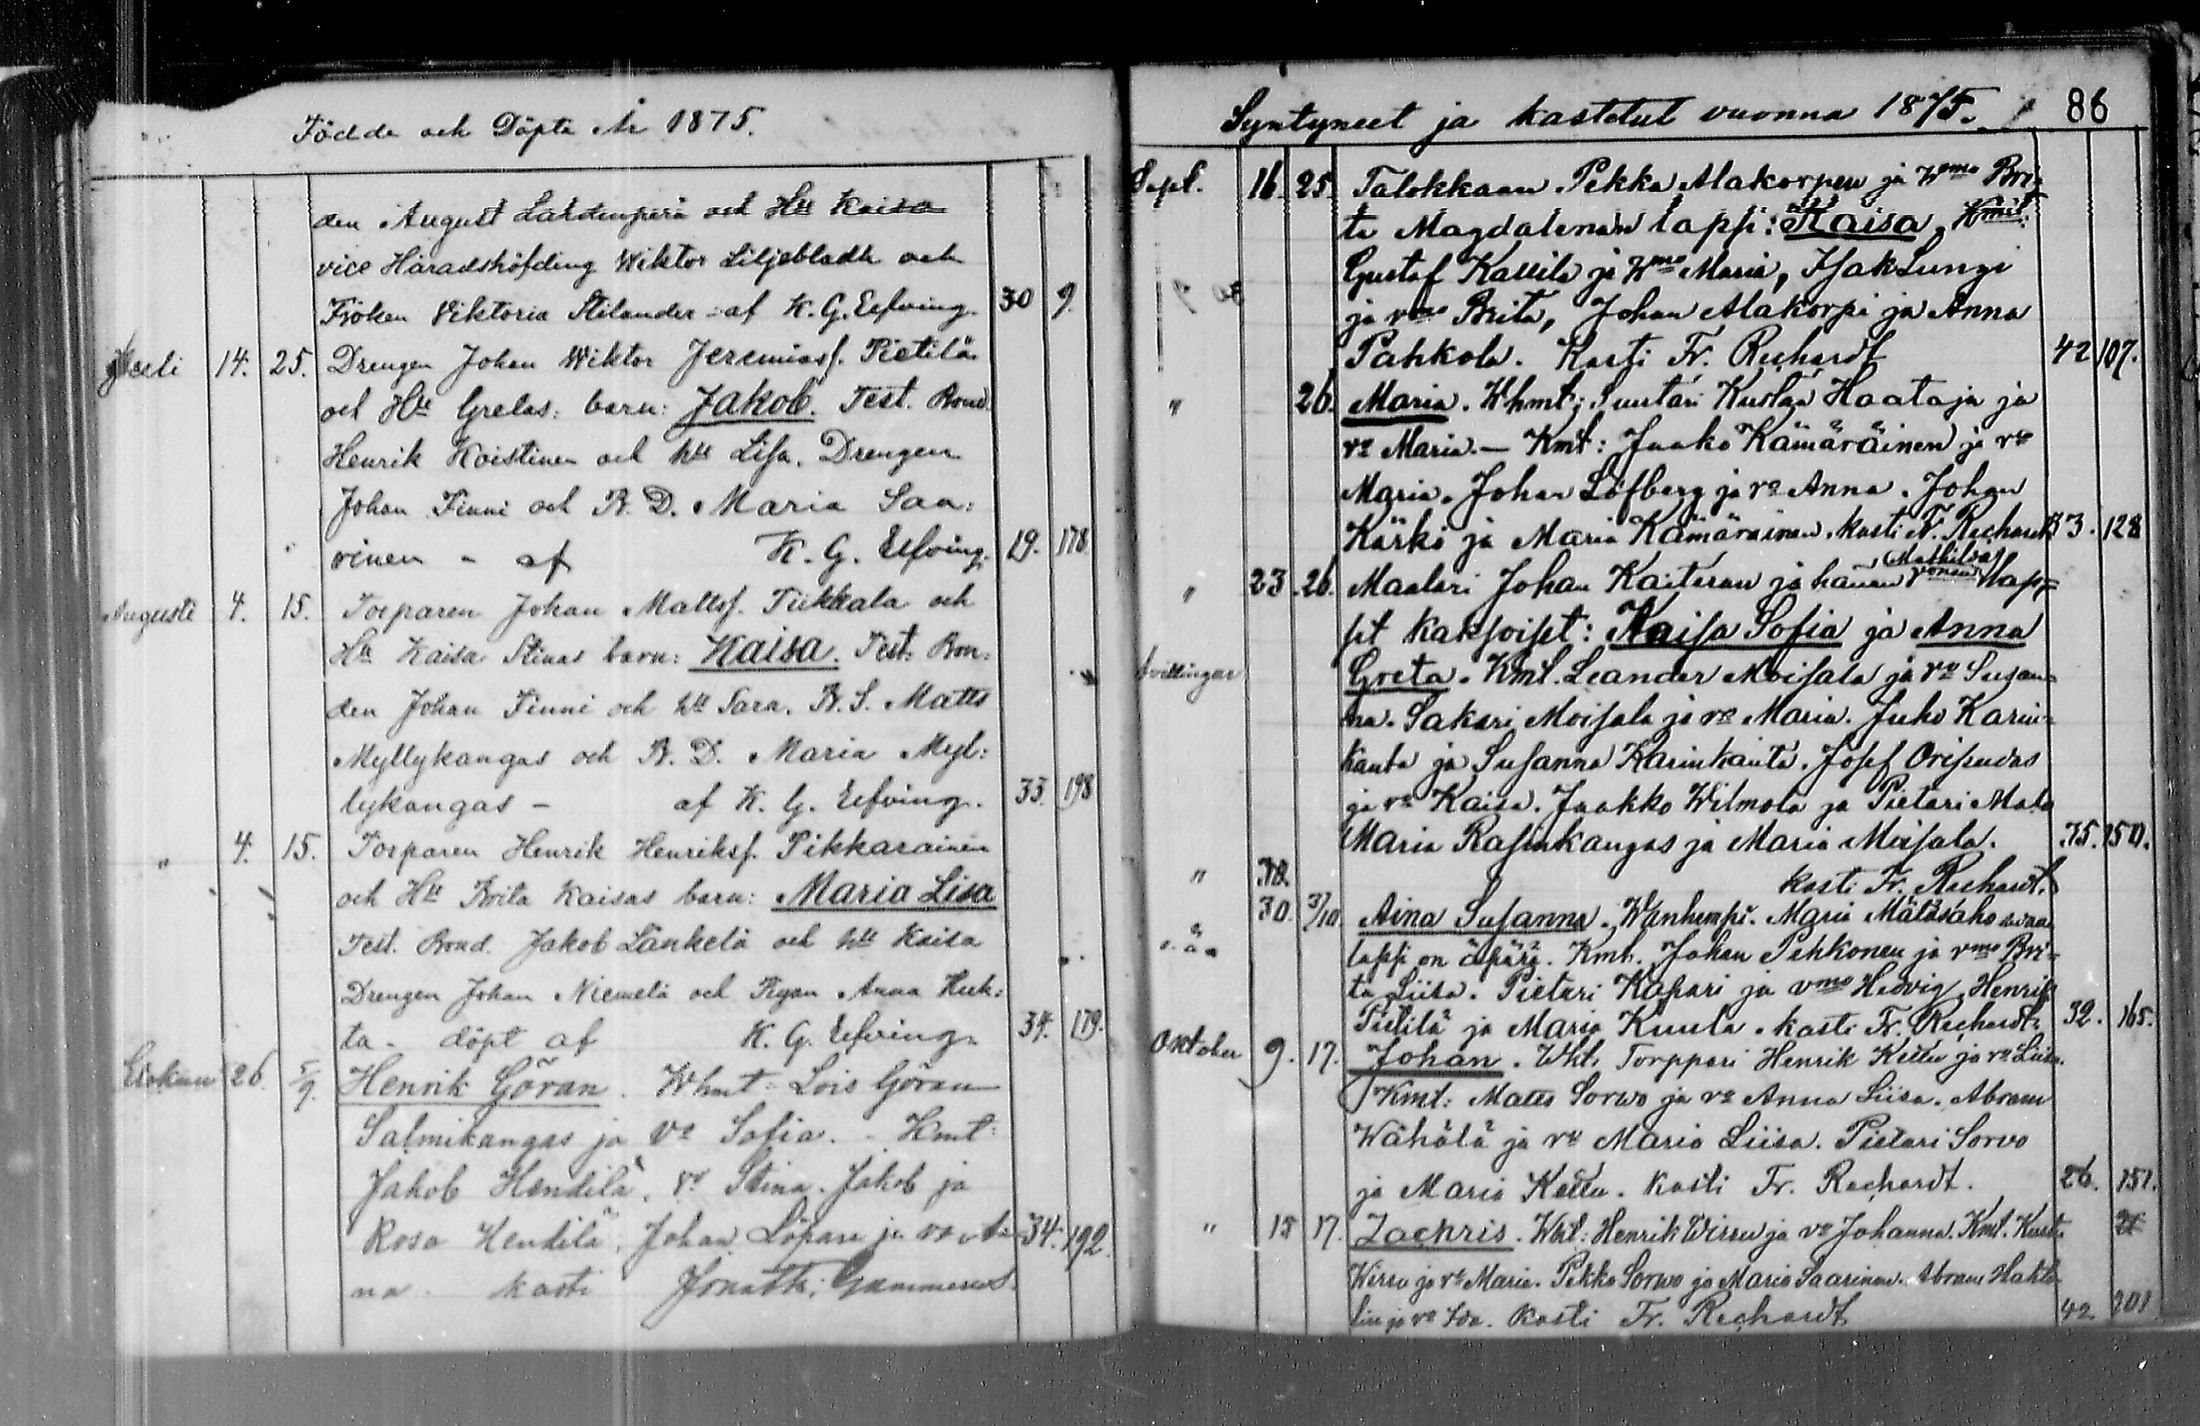 Födde och Döpte År 1875.
den August Lardenperä och Hu Kaisa
vice Häradshöfding Wiktor Liljebladh och
Fröken Viktoria Stilander af K. G. Elfving. 30 9.
Juli 14. 25. Drengen Johan Wiktor Jeremiass. Pietilä
och Hu Gretas barn: Jakob. Test. Bond.
Henrik Koistinen och hu Lisa. Drengen
Johan Finni och B. D. Maria Saa:
rinen - af K. G. Elfving. 19. 178
Augusti 4. 15. Torparen Johan Mattss. Tikkala och
Hu Kaisa Stinas barn: Kaisa. Test. Bon:
den Johan Finni och hu Sara. B. S. Matts
Myllykangas och B. D. Maria Myl:
lykangas - af K. G. Elfving. 33. 198
" 4. 15. Torparen Henrik Henrikss. Pikkarainen
och Hu Brita Kaisas barn: Maria Lisa
Test. Bond. Jakob Lankela och hu Kaisa
Drengen Johan Niemelä och Pigan Anna Huh:
ta - döpt af K. G. Elfving. 34. 179.
Elokuu 26. 5/9. Henrik Göran. Whmt: Lois Göran
Salmikangas ja Vo Sofia. - Kmt:
Jakob Hendilä, vo Stina. Jakob ja
Rosa Hendilä, Johan Löpare ja vo An 34. 192.
na. kasti Jonath. Gummerus.
Syntyneet ja kastetut vuonna 1875. 86
Sept. 16. 25. Talokkaan Pekka Alakorpen ja Wmo Bri:
ta Magdalenan lapsi: Kaisa. Kmit:
Gustaf Kallila ja Wmo Maria, Isak Lungi
ja vmo Brita, Johan Alakorpi ja Anna
Pahkola. Kasti Fr. Rechardt 42 107.
" 26. Maria. Whmt: Suutari Kustaa Haataja ja
vo Maria. — Kmt: Jaako Kämäräinen ja vo
Maria. Johan Löfberg ja vo Anna. Johan
Kärki ja Maria Kämäräinen. kasti Fr. Rechardt 33. 128
" 23. 26. Maalari Johan Kaiteran ja hänen vonsa Mathildan lap=
set kaksoiset: Kaisa Sofia ja Anna
tvillingar Greta. Kmt. Leander Moisala ja vo Susan=
na. Sakari Moisala ja vo Maria. Juho Karin=
kanta ja Susanna Karinkanta. Josef Orisudas
ja vo Kaisa. Jaakko Wilmola ja Pietari Mala
Maria Rasinkangas ja Maria Moisala. 75. 150.
" kasti Fr. Rechardt.
30. 3/10 Aina Susanna. Wanhempi. Maria Mätäsaho
lapsi on äpärä. Kmt. Johan Pehkonen ja vmo Bri=
ta Liisa. Pietari Kapari ja vmo Hedvig, Henrik
Pietilä ja Maria Kuula. kasti Fr. Rechardt. 32. 165.
Oktober 9. 17. Johan. Wht. Torppari Henrik Keltu ja vo Liisa.
Kmt: Matts Sorwo ja vo Anna Liisa. Abram
Wähälä ja vo Maria Liisa. Pietari Sorvo
ja Maria Keltu. kasti Fr. Rechardt. 26. 151.
" 15 17. Zachris. Wht: Henrik Wirru ja vo Johanna. Kmt. Kust.
Wirru ja vo Maria. Pekka Sorwo ja Maria Saarinen. Abram Hakta
lin ja vo Ida. Kasti Fr. Rechardt 42 201